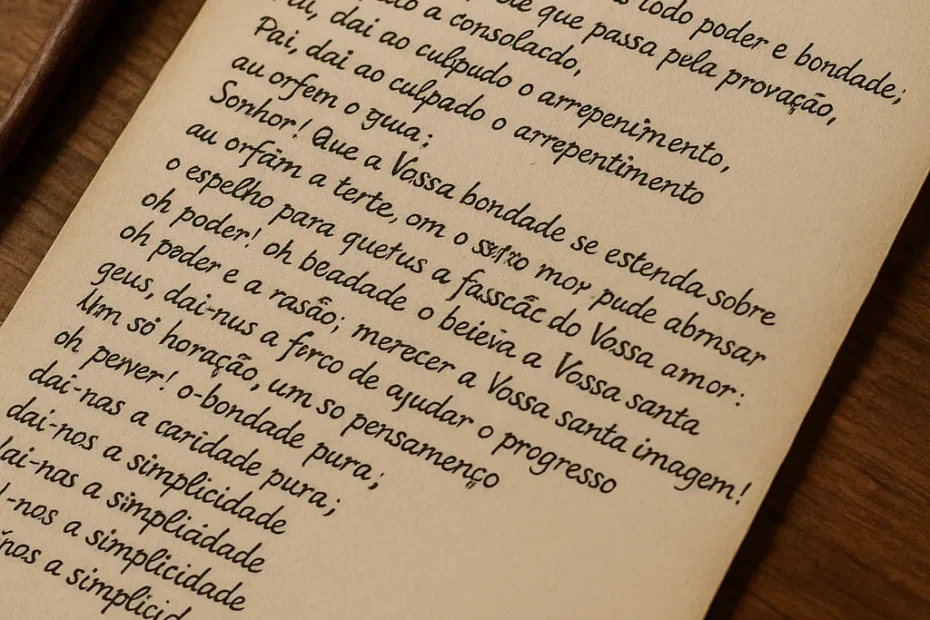 todo poder e bondade;
a consolacdo, que passa pela provação,
dai ao culpudo o arrepenimento,
Pai, dai ao culpado o arrepentimento
au orfem o guia;
Sonhor! Que a Vossa bondade se estenda sobre
au orfãm a terte, om o mor pude abrnsar
o espelho para quetus a fasscãc do Vossa amor:
oh poder! oh beadade o beieva a Vossa santa
oh pader e a rasão; merecer a Vossa santa imagem!
geus, dai-nus a forco de ajudar o progresso
Um só horação, um so pensamenço
oh perver! o-bondade pura;
dai-nas a caridade pura;
dai-nos a simplicidade
dai-nas a simpliadade
-nos a simplicidade
nos a simplicid